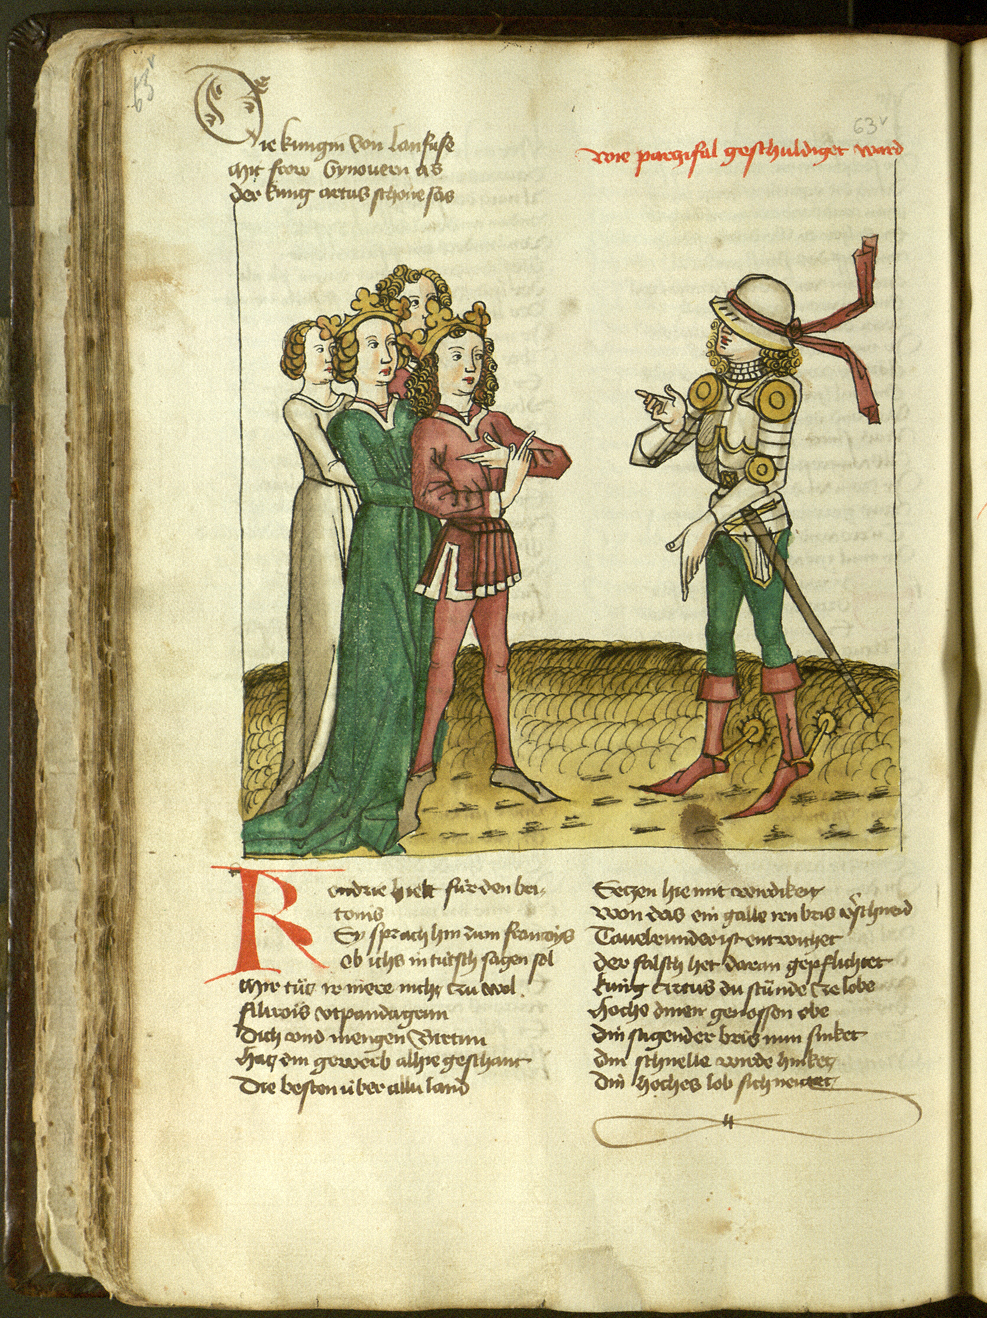 63v
63v
Die kungin von Lanfuse
Mit frow Gynouern as
der kung artus schone sas
wie parzifal geschuldiget ward
Kondrie hielt für den bri-
tonis
Sy sprach hin zum franzoys
Ob ichs in tütsch sagen sol
Mir tüt ir mere nicht zu wol
filurois utpandagrun
Dich vnd mengen Britun
Hat din gewerb alhie geschant
Die besten über allu land
Setzen hie mit wirdiken
Won das ein galle ren bris verschneid
Tauelrunder ist entwichet
der falsch het daran gepflichtet
kung Artus du stünde ze lobe
Hochs diner genossen obe
Din stigender bris nun sinket
din schnelle wirde hinket
Din hoches lob sich neiget